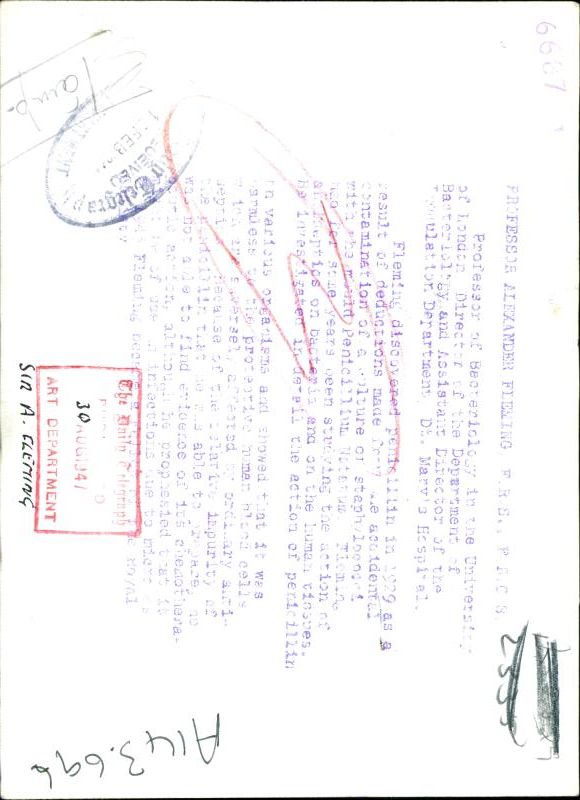 PROFESSOR ALEXANDER FLEMING F.R.S., F.R.C.S.
Professor of Bacteriology in the University
of London Director of the Department of
Bacteriology and Assistant Director of the
Department St. Mary's Hospital.
Fleming discovered penicillin in 1929 as a
result of deductions made from the accidental
contamination of a culture of staphylococci
with the mould Penicillium Notatum. Fleming
had for some years been studying the action of
antiseptics on bacteria and on the human tissues.
He investigated in detail the action of penicillin
on various organisms and showed that it was
harmless to the protective human blood cells
which are adversely affected by ordinary anti-
septics. Because of the relative impurity of
the penicillin that he was able to prepare, he
was not able to find evidence of its chemothera-
peutic action although he propossed that it
due to
Fleming
6687
Temp.
The Daily Telegraph
30 AUG 1947
ART DEPARTMENT
SIR A. FLEMING
A143.696